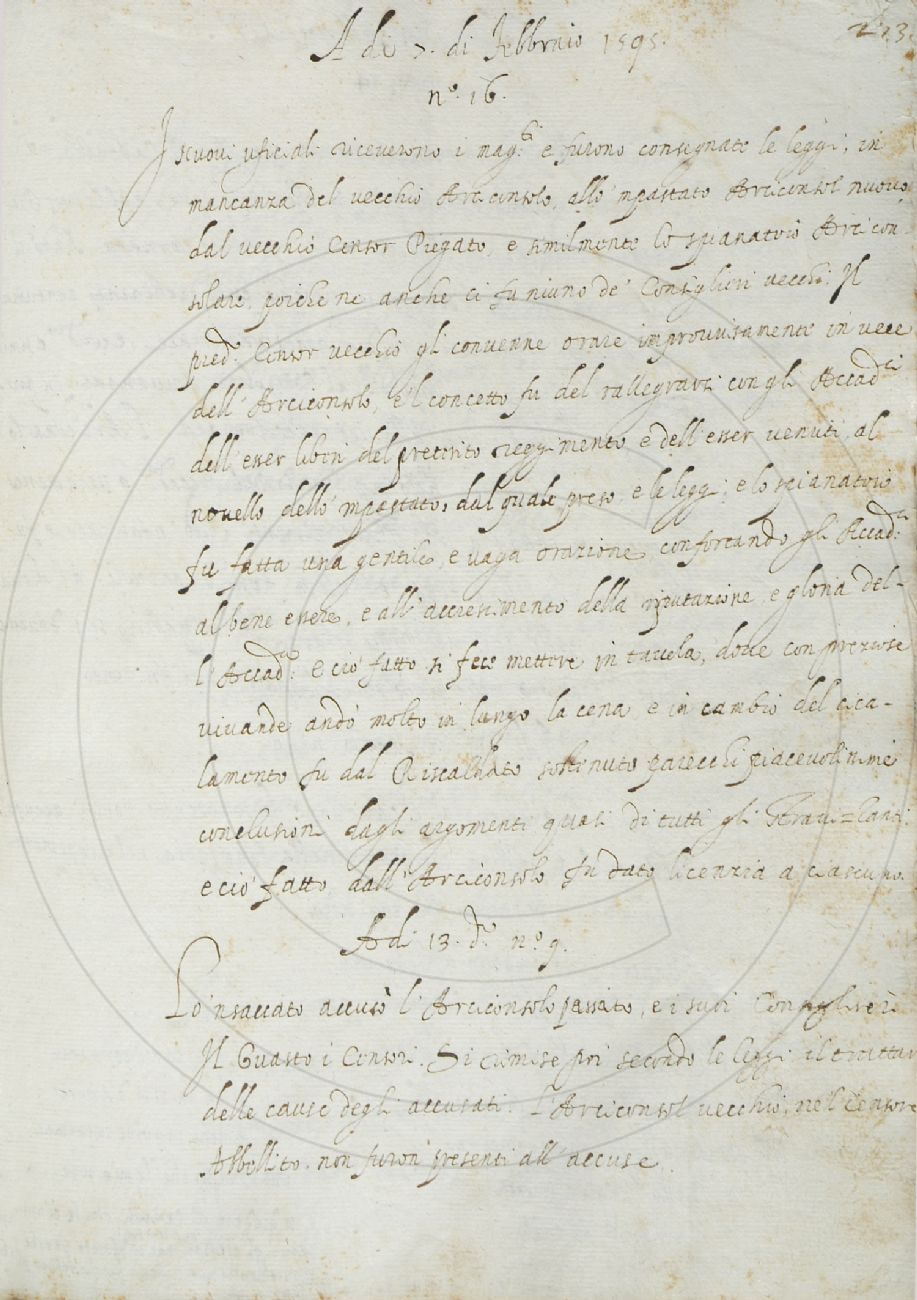 223.
A dì 7. di Febbraio 1595.
n.º 16.
I nuovi uficiali riceverono i mag.ti e furono consegnate le leggi, in
mancanza del vecchio Arciconsolo, allo 'mpastato Arciconsol nuovo,
dal vecchio Censor Piegato, e similmente lo spianatoio Arcicon
solare, poiche ne anche ci fu niuno de' Consiglieri vecchi. Il
pred.º Censor vecchio gli convenne orare improvvisamente in vece
dell'Arciconsolo, e 'l concetto fu del rallegrarsi con gli Accad.ci
dell'esser liberi del preterito reggimento e dell'esser venuti al
novello dello 'mpastato, dal quale preso, e le leggi, e lo spianatoio
fu fatta una gentile, e vaga orazione, confortando gli Accad.ci
al bene essere, e all'accrescimento della riputazione, e gloria del-
l'Accad.ª e ciò fatto si fece mettere in tavola, dove con preziose
vivande andò molto in lungo la cena, e in cambio del cica-
lamento fu dal Riscaldato sostenuto parecchi piacevolissime
conclusioni dagli argomenti quasi di tutti gli Stravizzanti.
e ciò fatto dall'Arciconsolo fu dato licenzia a ciascuno.
A dì 13. d.º n.º 9.
Lo 'nsaccato accusò l'Arciconsolo passato, e i suoi Consiglieri
Il Guasto i Censori. Si rimise poi secondo le leggi il trattar
delle cause degli accusati. L'Arciconsol vecchio, nel Censore
Abbollito non furon presenti all'accuse.